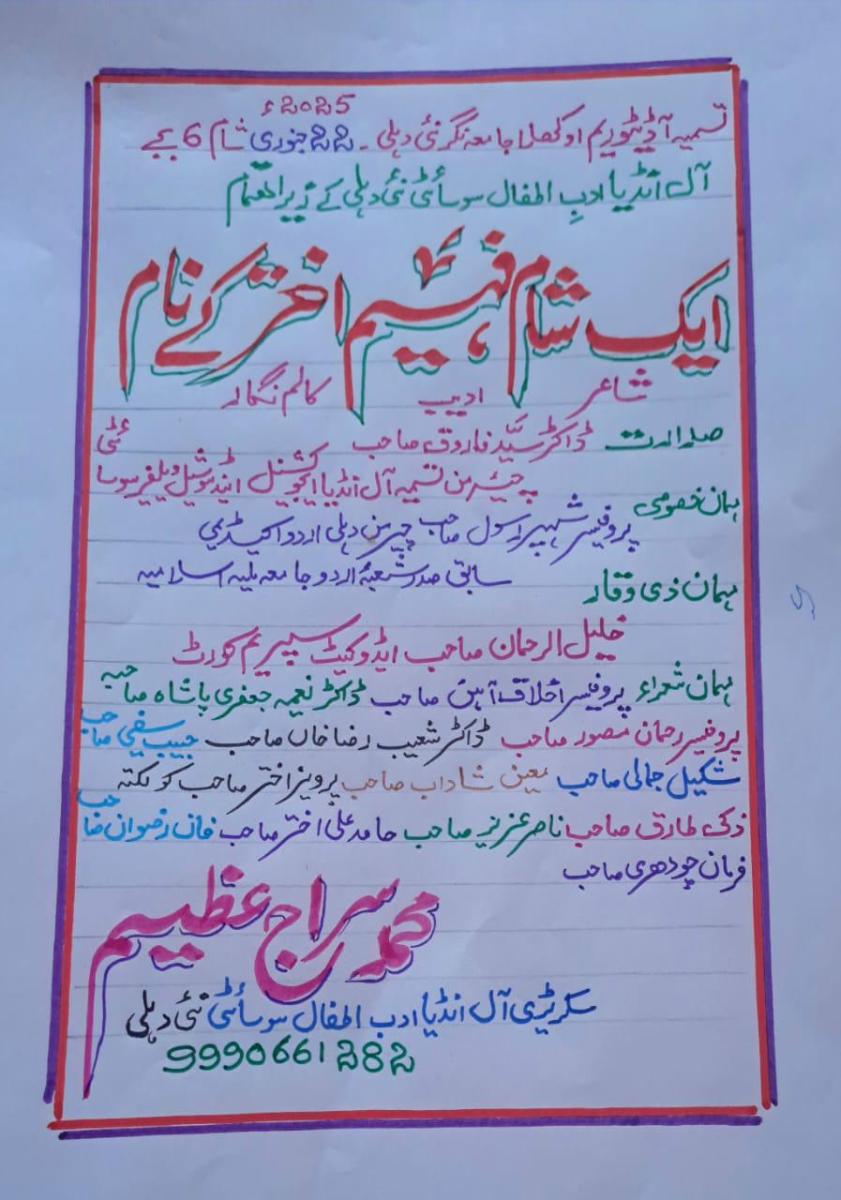 ۲۰۲۵ء
تسمیہ آڈیٹوریم اوکھلا جامعہ نگر نئی دہلی۔ ۲۲ جنوری شام 6 بجے
آل انڈیا ادبِ اطفال سوسائٹی نئی دہلی کے زیر اہتمام
ایک شام فہیم اختر کے نام
شاعر ادیب کالم نگار
صدارت ڈاکٹر سیّد فاروق صاحب
چیئرمن تسمیہ آل انڈیا ایجوکیشنل اینڈ سوشیل ویلفیر سوسائٹی
مہمان خصوصی پروفیسر شہپر رسول صاحب چیرمن دہلی اردو اکیڈیمی
سابق صدر شعبۂ اردو جامعہ ملیہ اسلامیہ
مہمان ذی وقار
خلیل الرحمان صاحب ایڈوکیٹ سپریم کورٹ
مہمان شعراء پروفیسر اخلاق آہن صاحب ڈاکٹر نعیمہ جعفری پاشاہ صاحبہ
پروفیسر رحمان مصور صاحب ڈاکٹر شعیب رضا خاں صاحب حبیب سیفی صاحب
شکیل جمالی صاحب معین شاداب صاحب پرویز اختر صاحب کولکتہ
ذکی طارق صاحب ناصر عزیز صاحب حامد علی اختر صاحب خان رضوان صاحب
فرمان چودھری صاحب
محمد سراج عظیم
سکریٹری آل انڈیا ادب اطفال سوسائٹی نئی دہلی
9990661282